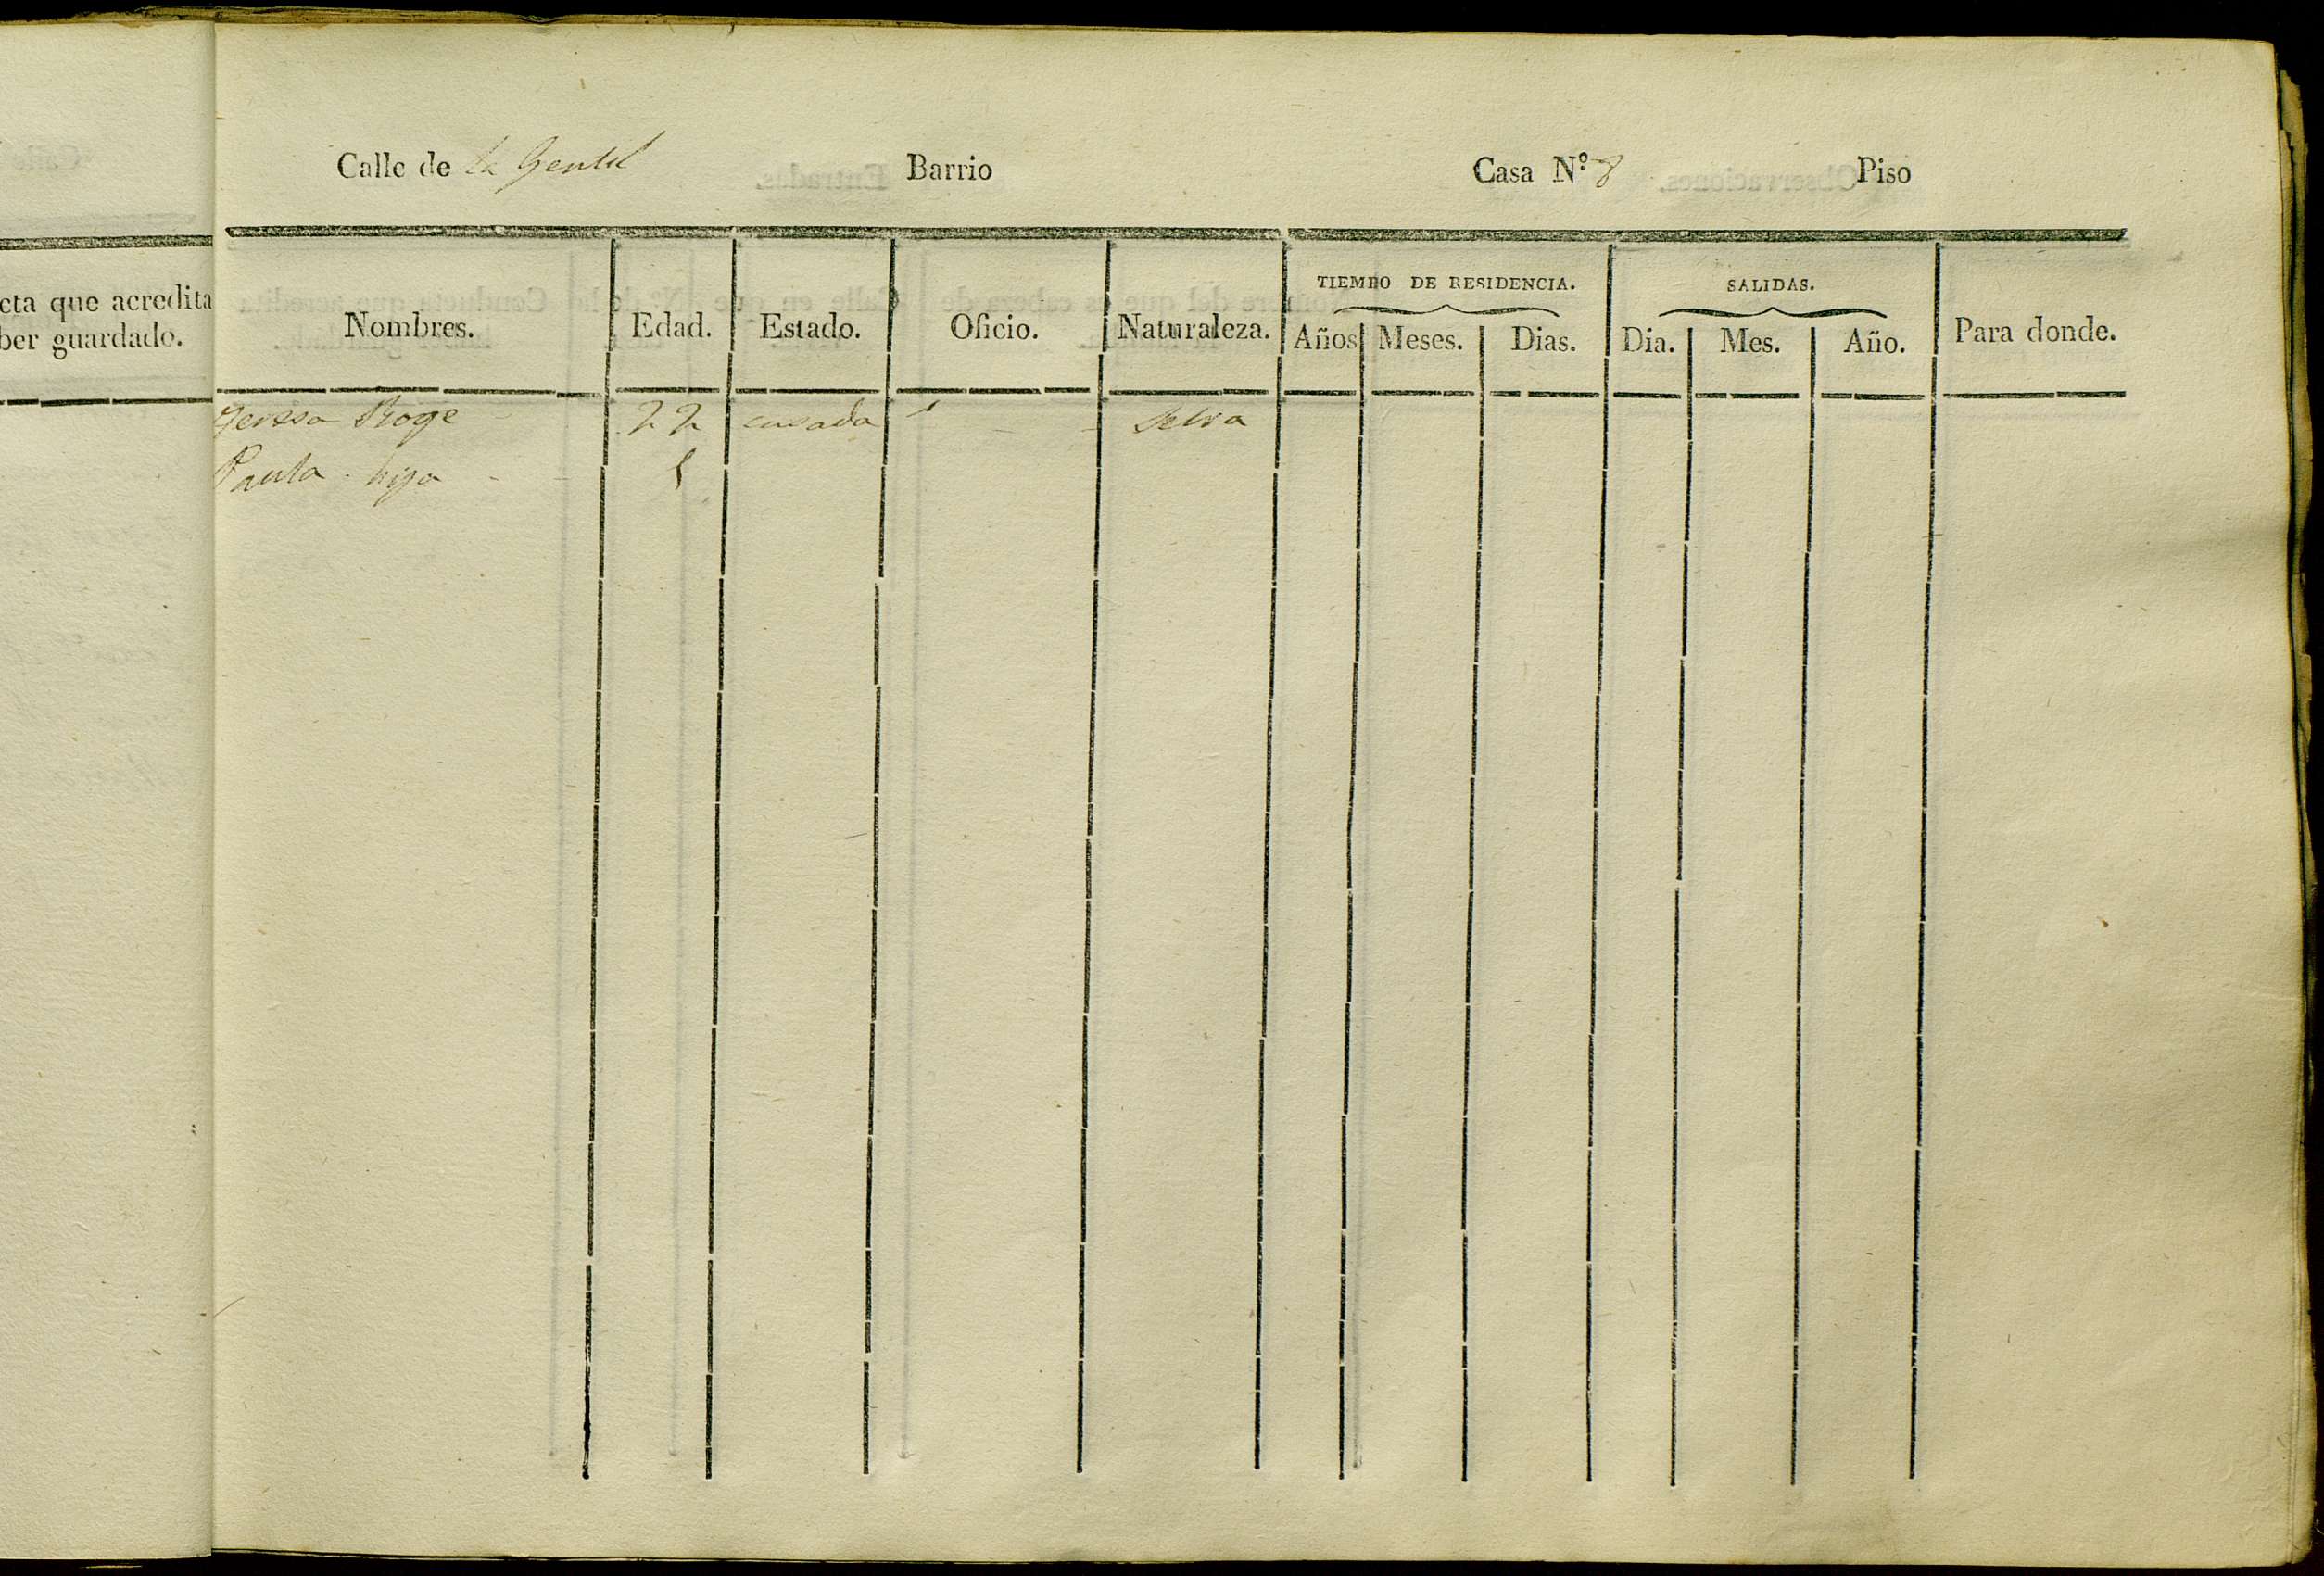 Calle de la Gentil Barrio Casa N.º 8 Piso
cta que acredita
ber guardado.
TIEMPO DE RESIDENCIA. SALIDAS.
Nombres. Edad. Estado. Oficio. Naturaleza. Años Meses. Dias. Dia. Mes. Año. Para donde.
Teresa Roge 22 casada Selva
Paula - hija - 1